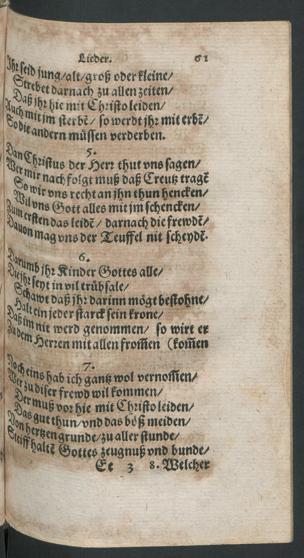 Lieder. 61
Ihr seid jung/alt/groß oder kleine/
Strebet darnach zu allen zeiten/
Daß jhr hie mit Christo leiden/
Auch mit jm sterbẽ/ so werdt jhr mit erbẽ/
So die andern müssen verderben.
5.
Dan Christus der Herr thut vns sagen/
Wer mir nach folgt muß daß Creutz tragẽ
So wir vns recht an jhn thun hencken/
Wil vns Gott alles mit jm schencken/
Zum ersten das leidẽ/ darnach die frewdẽ/
Dauon mag vns der Teuffel nit scheydẽ.
6.
Darumb jhr Kinder Gottes alle/
Die jhr seyt in vil trübsale/
Schawt daß jhr darinn mögt bestohne/
Halt ein jeder starck sein krone/
Daß im nit werd genommen/ so wirt er
Zu dem Herren mit allen from̃en (kom̃en
7.
Noch eins hab ich gantz wol vernom̃en/
Wer zu diser frewd wil kommen/
Der muß vor hie mit Christo leiden/
Das gut thun/ vnd das böß meiden/
Von hertzen grunde/ zu aller stunde/
Steiff haltẽ Gottes zeugnuß vnd bunde/
Ee 3 8. Welcher